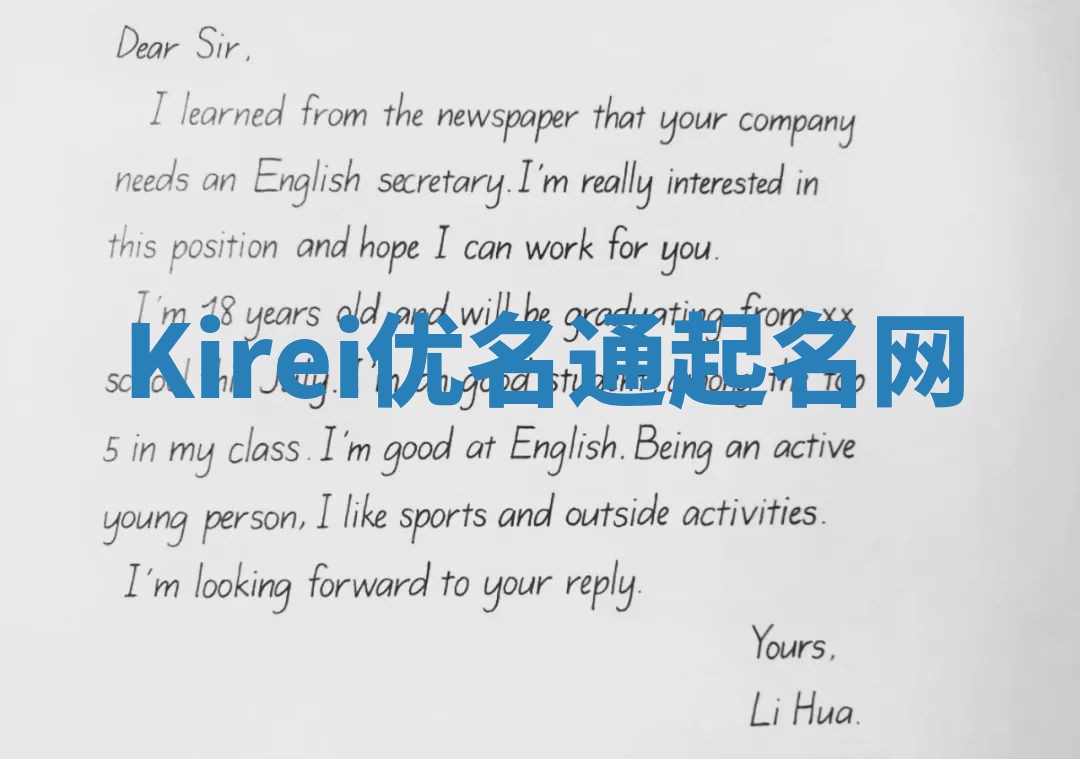 Dear Sir,
I learned from the newspaper that your company
needs an English secretary. I'm really interested in
this position and hope I can work for you.
I'm 18 years old and will be graduating from xx
Kirei优名通起名网
school this July. I'm good student among the top
5 in my class. I'm good at English. Being an active
young person, I like sports and outside activities.
I'm looking forward to your reply.
Yours,
Li Hua.